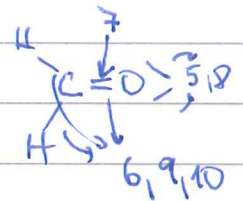 7
H
C=O 5,8
H
6,9,10